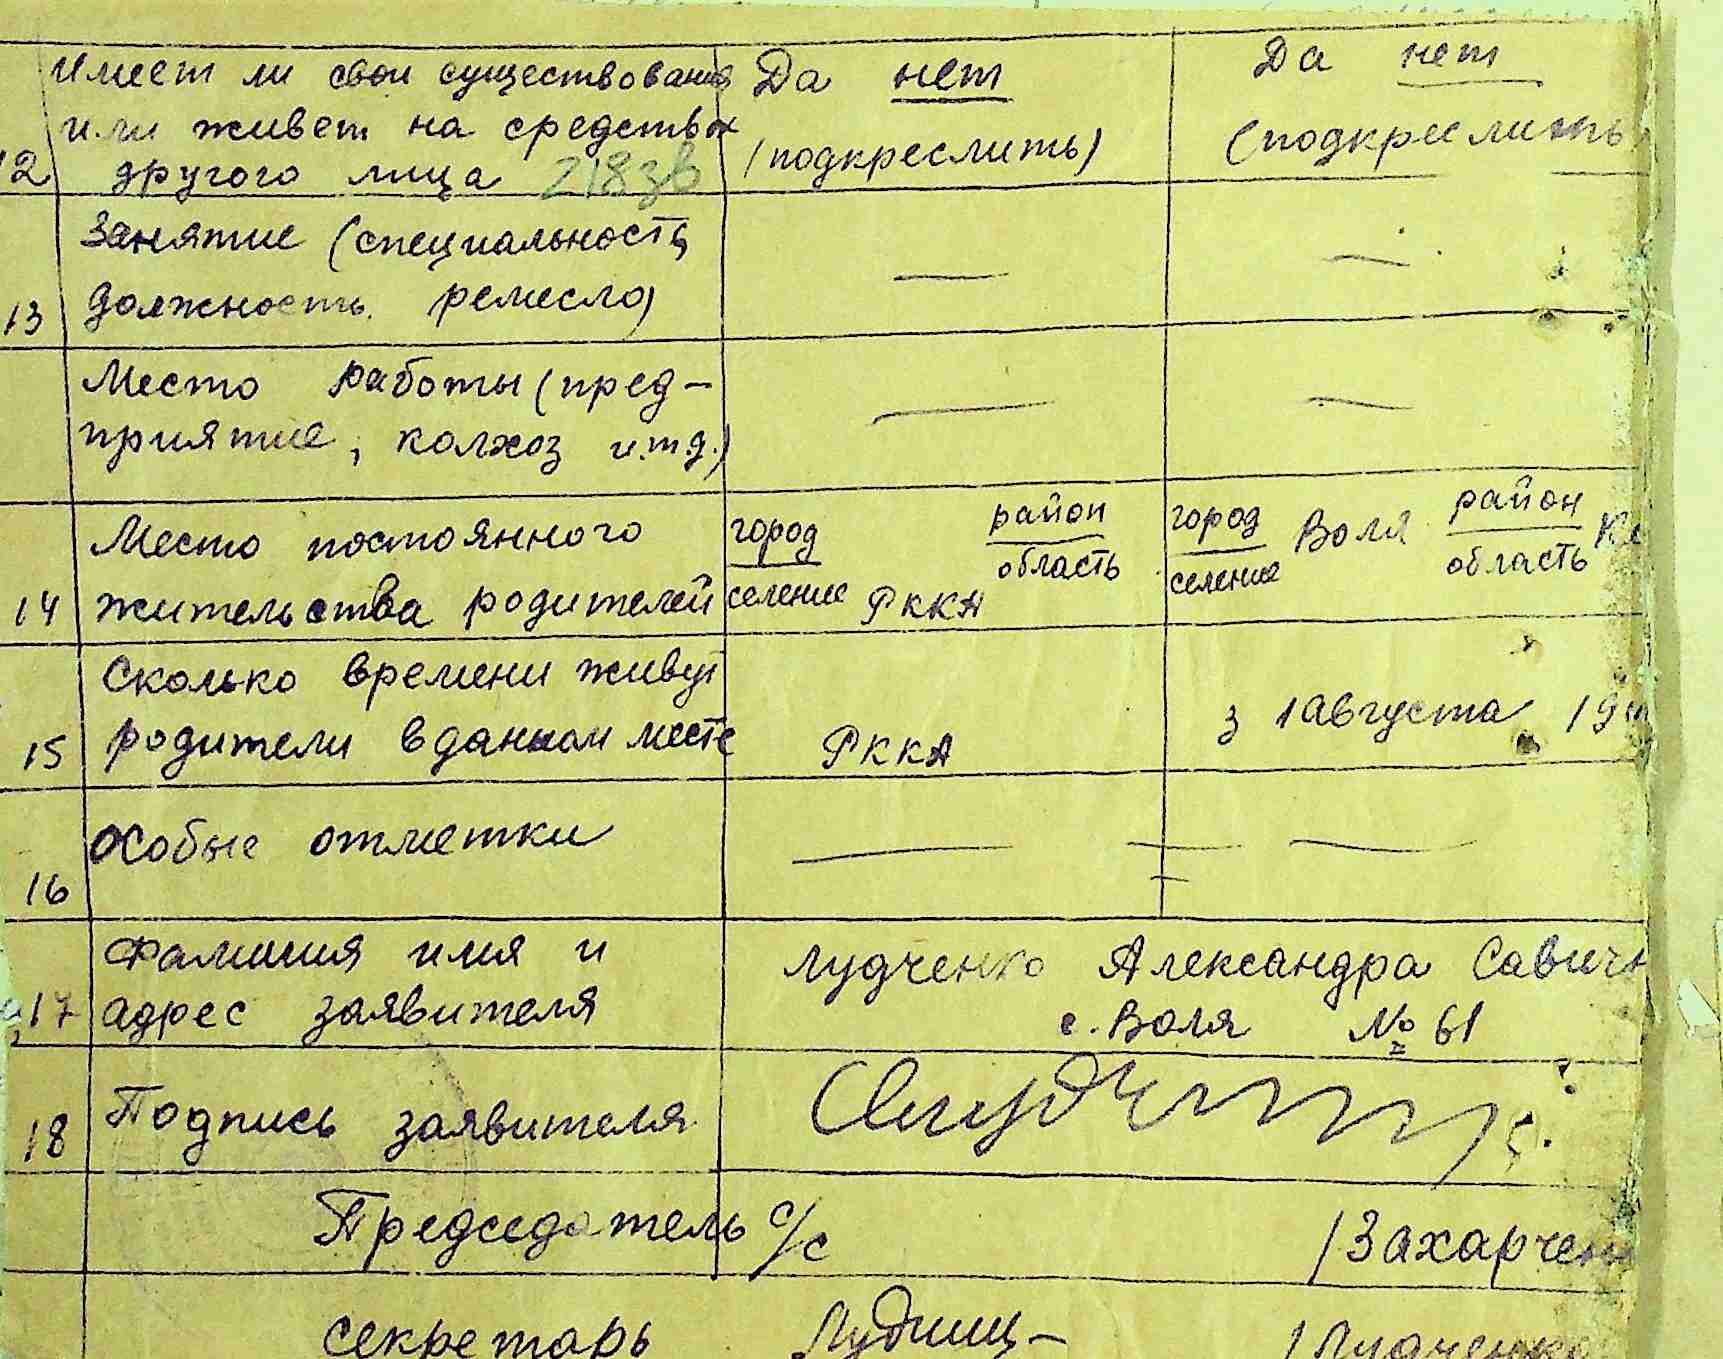 Имеет ли свои существования Да нет Да нет
или живет на средствах (подкреслить) (подкреслить
12 другого лица 218зв
Занятие (специальность,
13 должность, ремесло) — —
Место работы (пред-
приятие, колхоз и.т.д.) — —
14 Место постоянного жительства родителей
город район
селение область РККА
город Воля район
селение область
Сколько времени живут
15 родители в данном месте РККА з 1 августа
16 Особые отметки — —
Фамилия имя и Лудченко Александра Савичн
17 адрес заявителя с. Воля № 61
18 Подпись заявителя
Председатель с/с /Захарчен
секретарь /Лудченко